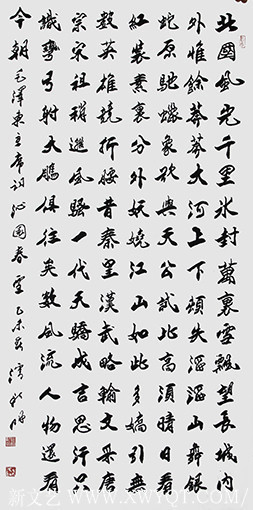 北國風光千里冰封萬裏雪飄望長城內
外惟餘莽莽大河上下頓失滔滔山舞銀
蛇原馳蠟象欲與天公試比高須晴日看
紅裝素裹分外妖嬈江山如此多嬌引無
數英雄競折腰昔秦皇漢武略輸文采唐
宗宋祖稍遜風騷一代天驕成吉思汗只
識彎弓射大鵰俱往矣數風流人物還看
今朝 毛澤東主席詞沁園春雪 乙未
新文艺 www.XWYQT.COM/